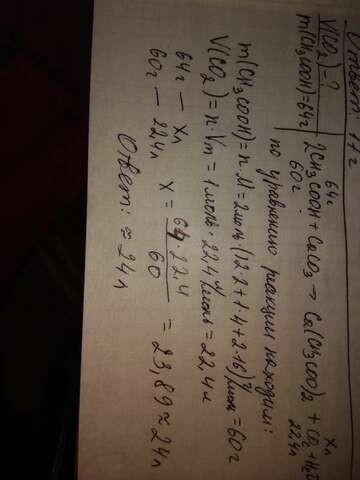 Ответ: 
V(CO₂) - ?
m(CH₃COOH)=64г
64г Xл
2CH₃COOH + CaCO₃ → Ca(CH₃COO)₂ + CO₂ + H₂O
60г 22,4л
по уравнению реакции находим:
m(CH₃COOH) = n·M = 2моль·(12·2+1·4+2·16)г/моль = 60г
V(CO₂) = n·Vm = 1моль·22,4л/моль = 22,4л
64г — Xл
60г — 22,4л X = 64·22,4/60 = 23,89 ≈ 24л
Ответ: ≈ 24л